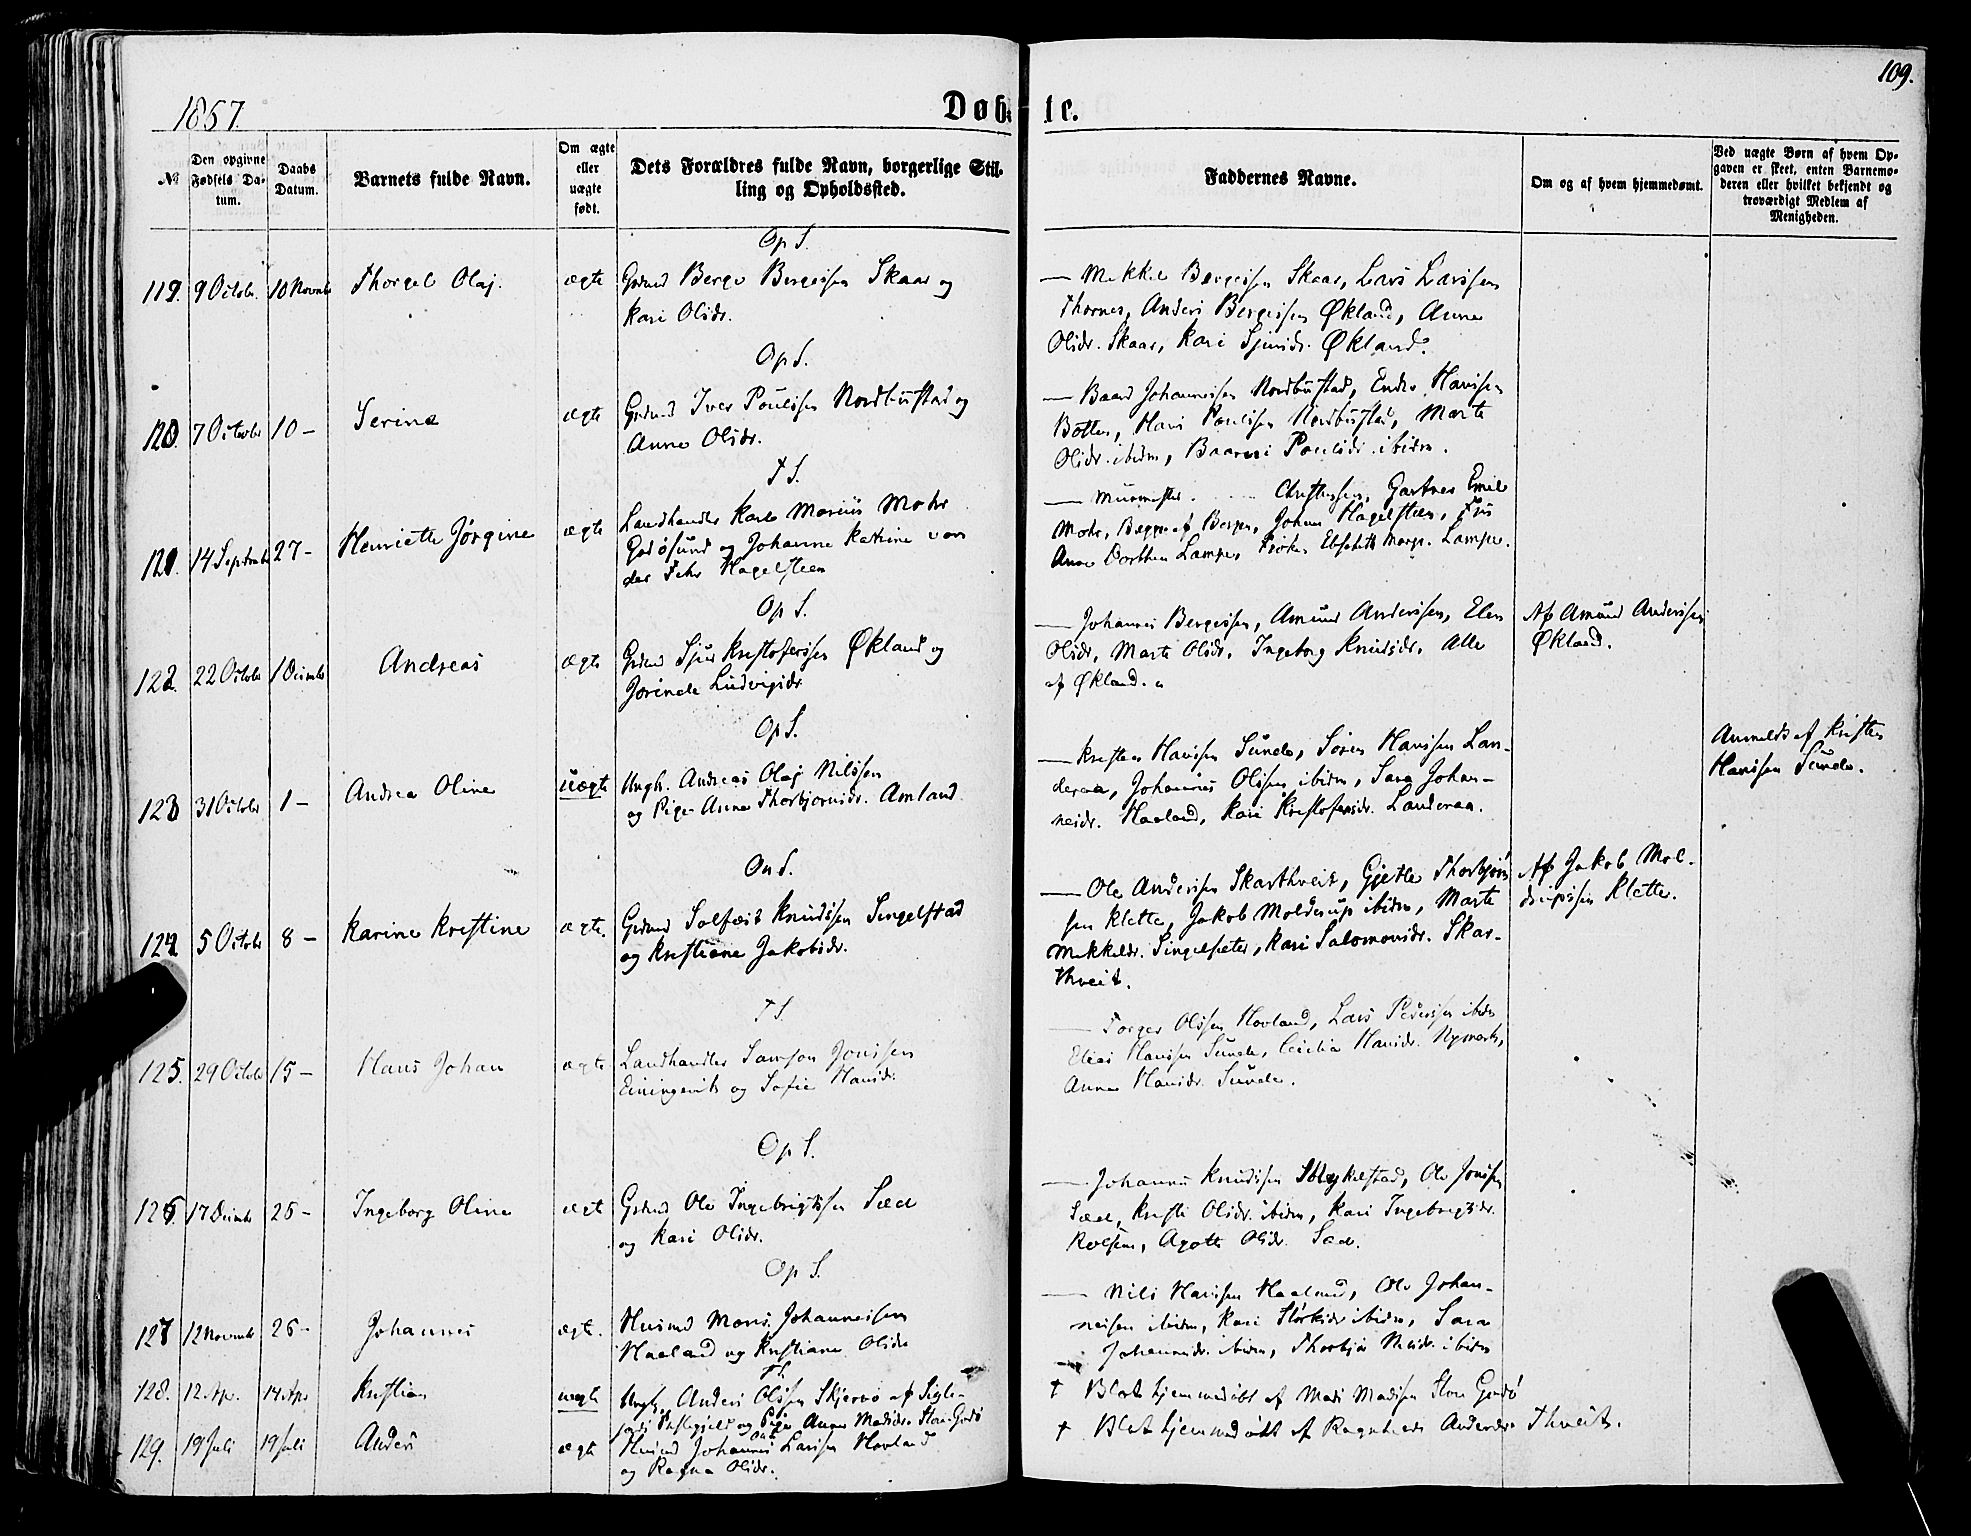 109.
1857.
Døbte.
№
Den opgivne Fødsels Datum.
Daabs Datum.
Barnets fulde Navn.
Om ægte eller uægte født.
Dets Forældres fulde Navn, borgerlige Stilling og Opholdssted.
Faddernes Navne.
Om og af hvem hjemmedømt.
Ved uægte Børn af hvem Opgaven er skeet, enten Barnemoderen eller hvilket bekjendt og troværdigt Medlem af Menigheden.
Op S.
119. 9 Octobr. 10 Novmbr Thorgel Olaj. ægte Grdmd Berge Bergesen Skaar og
Kari Olsdr.
— Mikkel Bergesen Skaar, Lars Larssen
Thornes, Anders Bergesen Økland, Anna
Olsdr. Skaar, Kari Sjursdr. Økland.
Op S.
120. 7 Octobr 10 — Serina ægte Grdmd Iver Poulsen Nordhustad og
Anna Olsdr.
— Baard Johannessen Nordhustad, Endre Hansen
Botten, Hans Poulsen Nordhustad, Marte
Olsdr. ibidm, Poulsdr. ibidm.
T S.
121. 14 Septembr 27 — Henriette Jørgine ægte Landhandler Karl Marius Mohr
Godøsund og Johanne Katrine von
der Fehr Hagelsteen
— Murmester Christensen, Gartner Emil
Mohr, Begge af Bergen, Johan Hagelsteen,
Anne Dorthea Lampe, Frøken Elsebeth Marg. Lampe.
Op S.
122. 22 Octobr 1 Decmbr Andreas ægte Grdmd Sjur Kristofersen Økland og
Jorinde Ludvigsdr
— Johannes Bergesen, Amund Anderssen, Elen
Olsdr, Marte Olsdr, Ingeborg Knudsdr. Alle
af Økland.
Af Amund Anderssen
Økland.
Op S.
123 31 Octobr 1 — Andrea Oline uægte Ungk. Andreas Olaj Nilssen
og Pige Anna Thorbjørnsdr. Amland
— Kristen Hanssen Sunde, Søren Hanssen Lan-
deraa, Johannes Olssen ibidm, Sara Johan-
nesdr. Haaland, Kari Kristofersdr. Landeraa.
Anmeldt af Kristen
Hanssen Sunde.
On S.
124 5 Octobr 8 — Karine Kristine ægte. Grdmd Solfest Knudssen Singelstad
og Kristiane Jakobsdr.
— Ole Anderssen Skarthveit, Gjetle Thorbjørn
sen Klette, Jakob Molderup ibidm, Marte
Mikkelsdr. Singelsæter, Kari Salomonsdr. Skar-
thveit.
Af Jakob Mol-
drupsen Klette.
T S.
125. 29 Octobr 15 — Hans Johan ægte Landhandler Samson Jonssen
Einingevik og Sofie Hansdr.
— Torger Olssen Hovland, Lars Pederssen ibidm
Elias Hanssen Sunde, Cecilia Hansdr. Nymark,
Anna Hansdr. Sunde.
Op S.
126. 17 Decmbr 26 — Ingeborg Oline ægte Grdmd Ole Ingebrigtssen Sæd
og Kari Olsdr.
— Johannes Knudssen Ole Jonssen
Sæd, Kristi Olsdr. ibidm, Kari Ingebrigtsdr.
Agotte Olsdr. Sæd.
Op S.
127 12 Novmbr 26 — Johannes ægte. Husmd Mons Johannessen
Haaland og Kristiane Olsdr
— Nils Hanssen Haaland, Ole Johan-
nessen ibidm, Kari Størksdr ibidm, Sara
Johannesdr. ibidm, Thorbjør Nilsdr. ibidm
T S.
128. 12 Ap. 14 Ap. Kristian uægte Ungk. Anders Olssen Skjervø af Sigle-
fjords Præstegjeld og Pige Anna Madsdr. Store Godø
† Blot hjemmedøbt af Mads Madssen Store Godø
On S.
129. 19 Juli 19 Juli Anders ægte Husmd Johannes Larssen Hovland
og Ragna Olsdr.
† Blot hjemmedøbt af Ragnhild Andersdr. Thveit.